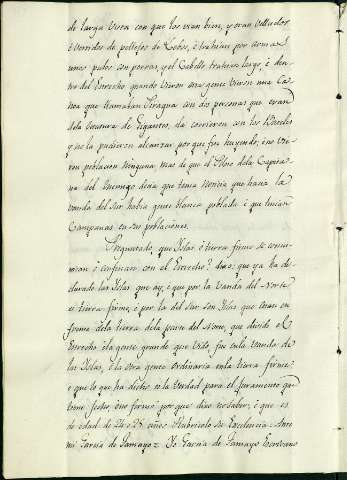 de larga vista con que los vian bien, y eran
è vestidos de pellejos de Lobos, è trahian por armas
unos palos con porras, y el Cabello trahian largo, è den-
tro del Estrecho grande vieron otra gente vivos una Ca-
noa que llamaban Piragua con dos personas que eran
dela Gigantes, la corrieron con los Bateles
y no la pudieron alcanzar por que fue huyendo; è no vie-
ron poblacion ninguna, mas de que el Piloto dela Capita-
na del Enemigo decia que tenia Noticia que hacia la
vanda del Sur habia gente blanca poblada è que tenian
Campanas en sus poblaciones.
Preguntado, que Islas è tierra firme se comu-
nican è confinan con el Estrecho? dixo; que ya ha de-
clarado las Islas que ay, è que por la vanda del Norte
es tierra firme, è por la del Sur son Islas que estan en
frente dela tierra dela parte del Norte, que divide el
Estrecho è la gente grande que vido fue en la vanda de
las Islas, è la otra gente ordinaria en la tierra firme:
è que lo que ha dicho es la Verdad para el juramento que
tiene fecho, è no firmò por que dixo no saber, è que es
de edad de 24 ò 25 años. Rubricolo Su Excelencia: Ante
mi Garcia de Tamayo = Yo Garcia de Tamayo Escrivano